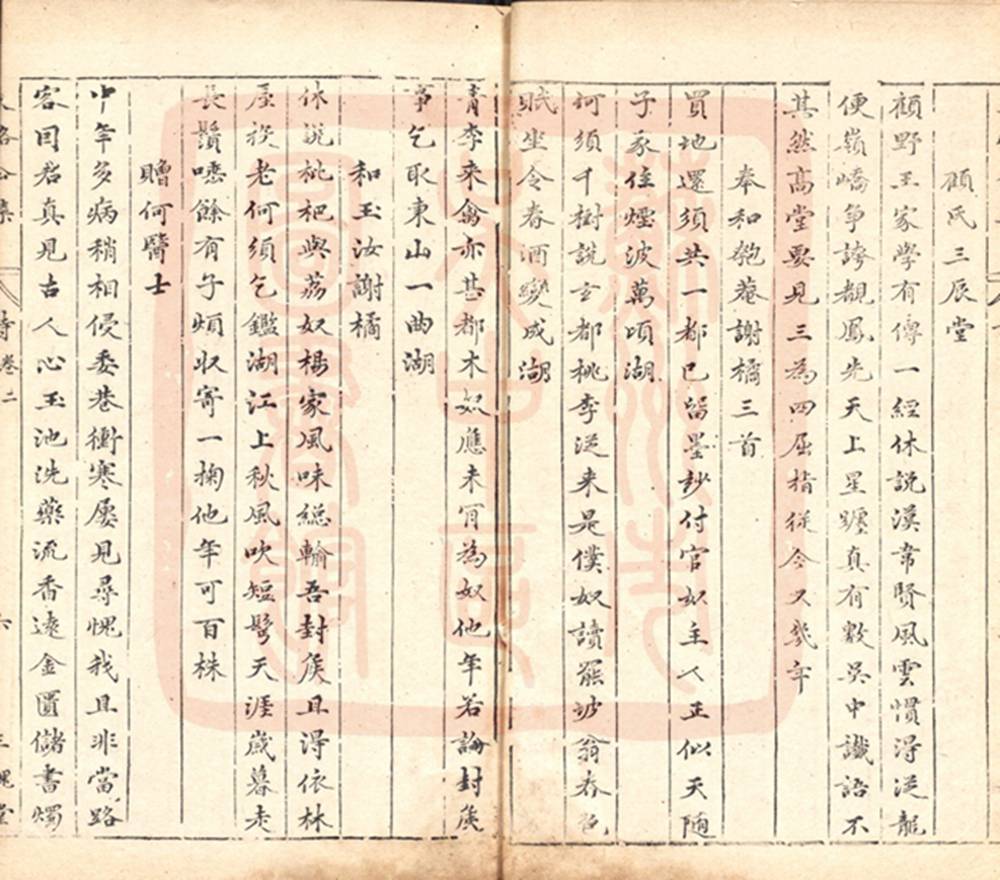 顧氏三辰堂
顧野王家學有傳一經休説漢韋賢風雲慣得從龍
便嶺嶠爭誇覩鳳先天上星躔真有數吳中讖語不
其然高堂要見三為四屈指從今又幾年
奉和匏菴謝橘三首
買地還須共一都已留墨鈔付官奴主人正似天隨
子家住煙波萬頃湖
何須千樹説玄都桃李從来是僕奴讀罷坡翁春色
賦坐令春酒變成湖
青李来禽亦甚都木奴應未肯為奴他年若論封侯
事乞取東山一曲湖
和玉汝謝橘
休説枇杷與荔奴楊家風味總輸吾封侯且得依林
屋投老何須乞鑑湖江上秋風吹短髩天涯歲暮未
長鬚噫餘有子煩収寄一掬他年可百株
贈何醫士
中年多病稍相侵委巷衝寒屢見尋愧我且非當路
客因君真見古人心玉池洗藥流香遠金匱儲書燭
詩卷二
六